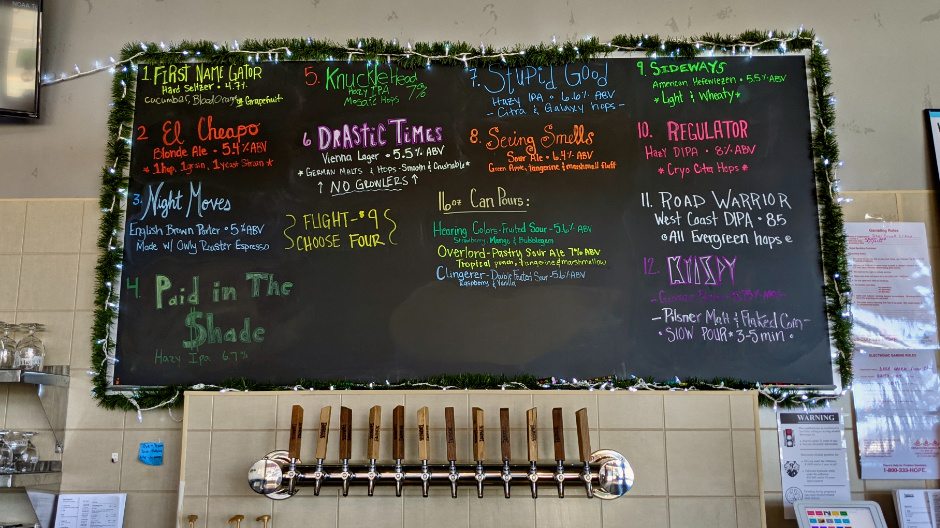 NCAA T
1. FIRST NAME GATOR
Hard Seltzer • 4.7%
Cucumber, Blood Orange & Grapefruit
2. El Cheapo
Blonde Ale • 5.4% ABV
* 1 hop, 1 grain, 1 yeast Strain *
3. Night Moves
English Brown Porter • 5% ABV
Made w/ Owly Roaster Espresso
4. Paid in The
$hade
Hazy Ipa 6.7%
5. Knucklehead
Hazy IPA 7%
Mosaic Hops
6. DRASTIC TIMES
Vienna Lager • 5.5% ABV
* GERMAN MALTS & Hops - Smooth & Crushable *
↑ NO GROWLERS ↑
FLIGHT - $9
CHOOSE FOUR
7. Stupid Good
Hazy IPA • 6.6% ABV
- Citra & Galaxy hops -
8. Seeing Smells
Sour Ale • 6.4% ABV
Green Apple, Tangerine & marshmallow fluff
16oz Can Pours:
Hearing Colors - Fruited Sour - 5.6% ABV
Strawberry, Mango & Bubblegum
Overlord - Pastry Sour Ale 7% ABV
Tropical punch, tangerine & marshmallow
Clingerer - Double Fruited Sour - 5.6% ABV
Raspberry & Vanilla
9. SIDEWAYS
American Hefeweizen • 5.5% ABV
* Light & Wheaty *
10. REGULATOR
HAZY DIPA • 8% ABV
* Cryo Citra Hops *
11. ROAD WARRIOR
West Coast DIPA • 8.5
All Evergreen hops
12. KRISPY
- Pilsner Malt & Flaked Corn -
• SLOW POUR • 3-5 min •
WARNING
ELECTRONIC GAMING RULES
1-800-333-HOPE